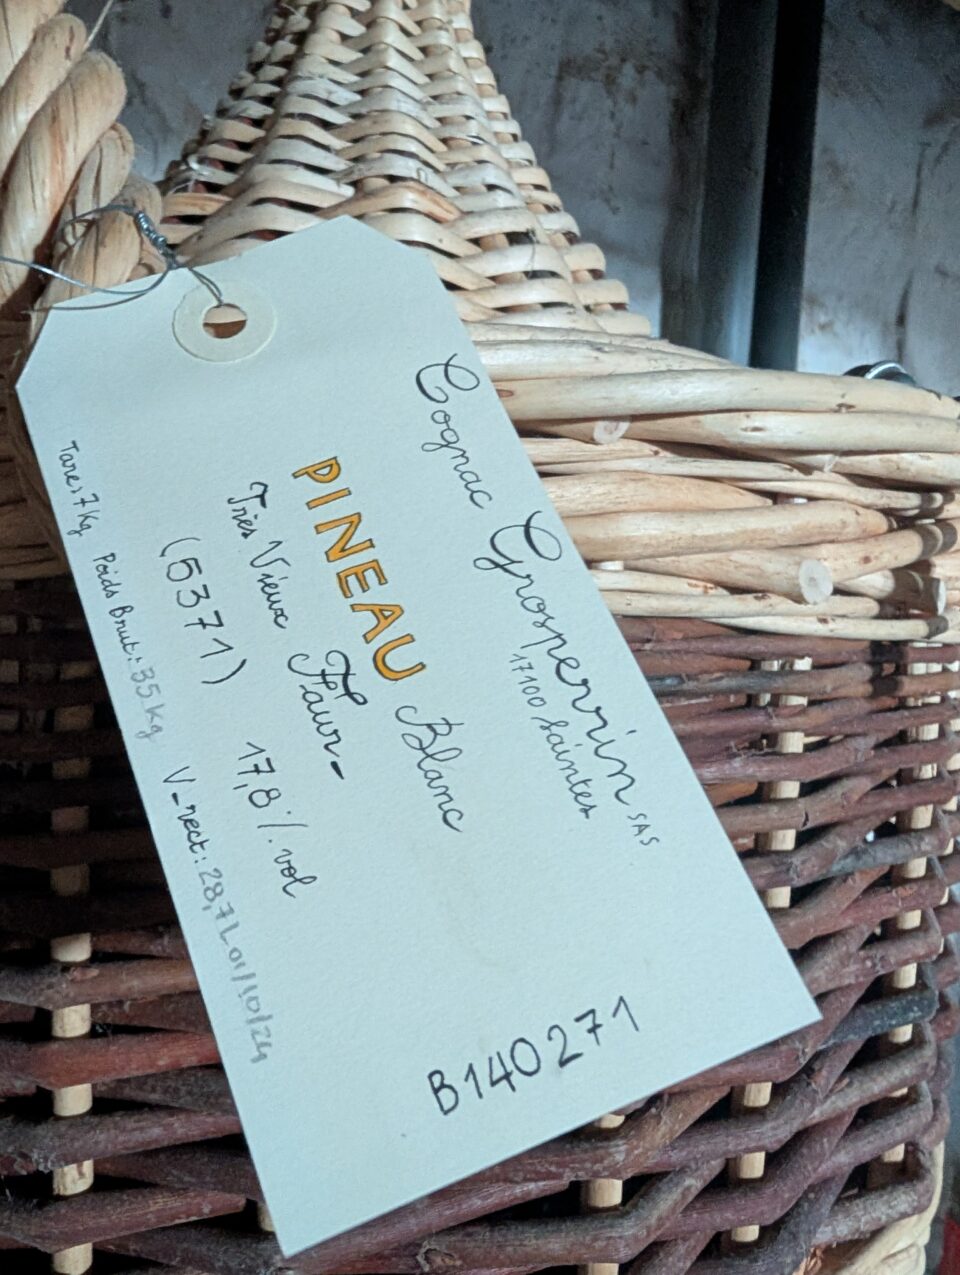 Cognac Grosperrin SAS
17100 Saintes
PINEAU Blanc
Très Vieux Faur-
(5371) 17,8 % vol
Tare: 7 Kg Poids Brut: 35 Kg V_rect: 28,7L 01/10/24
B140271